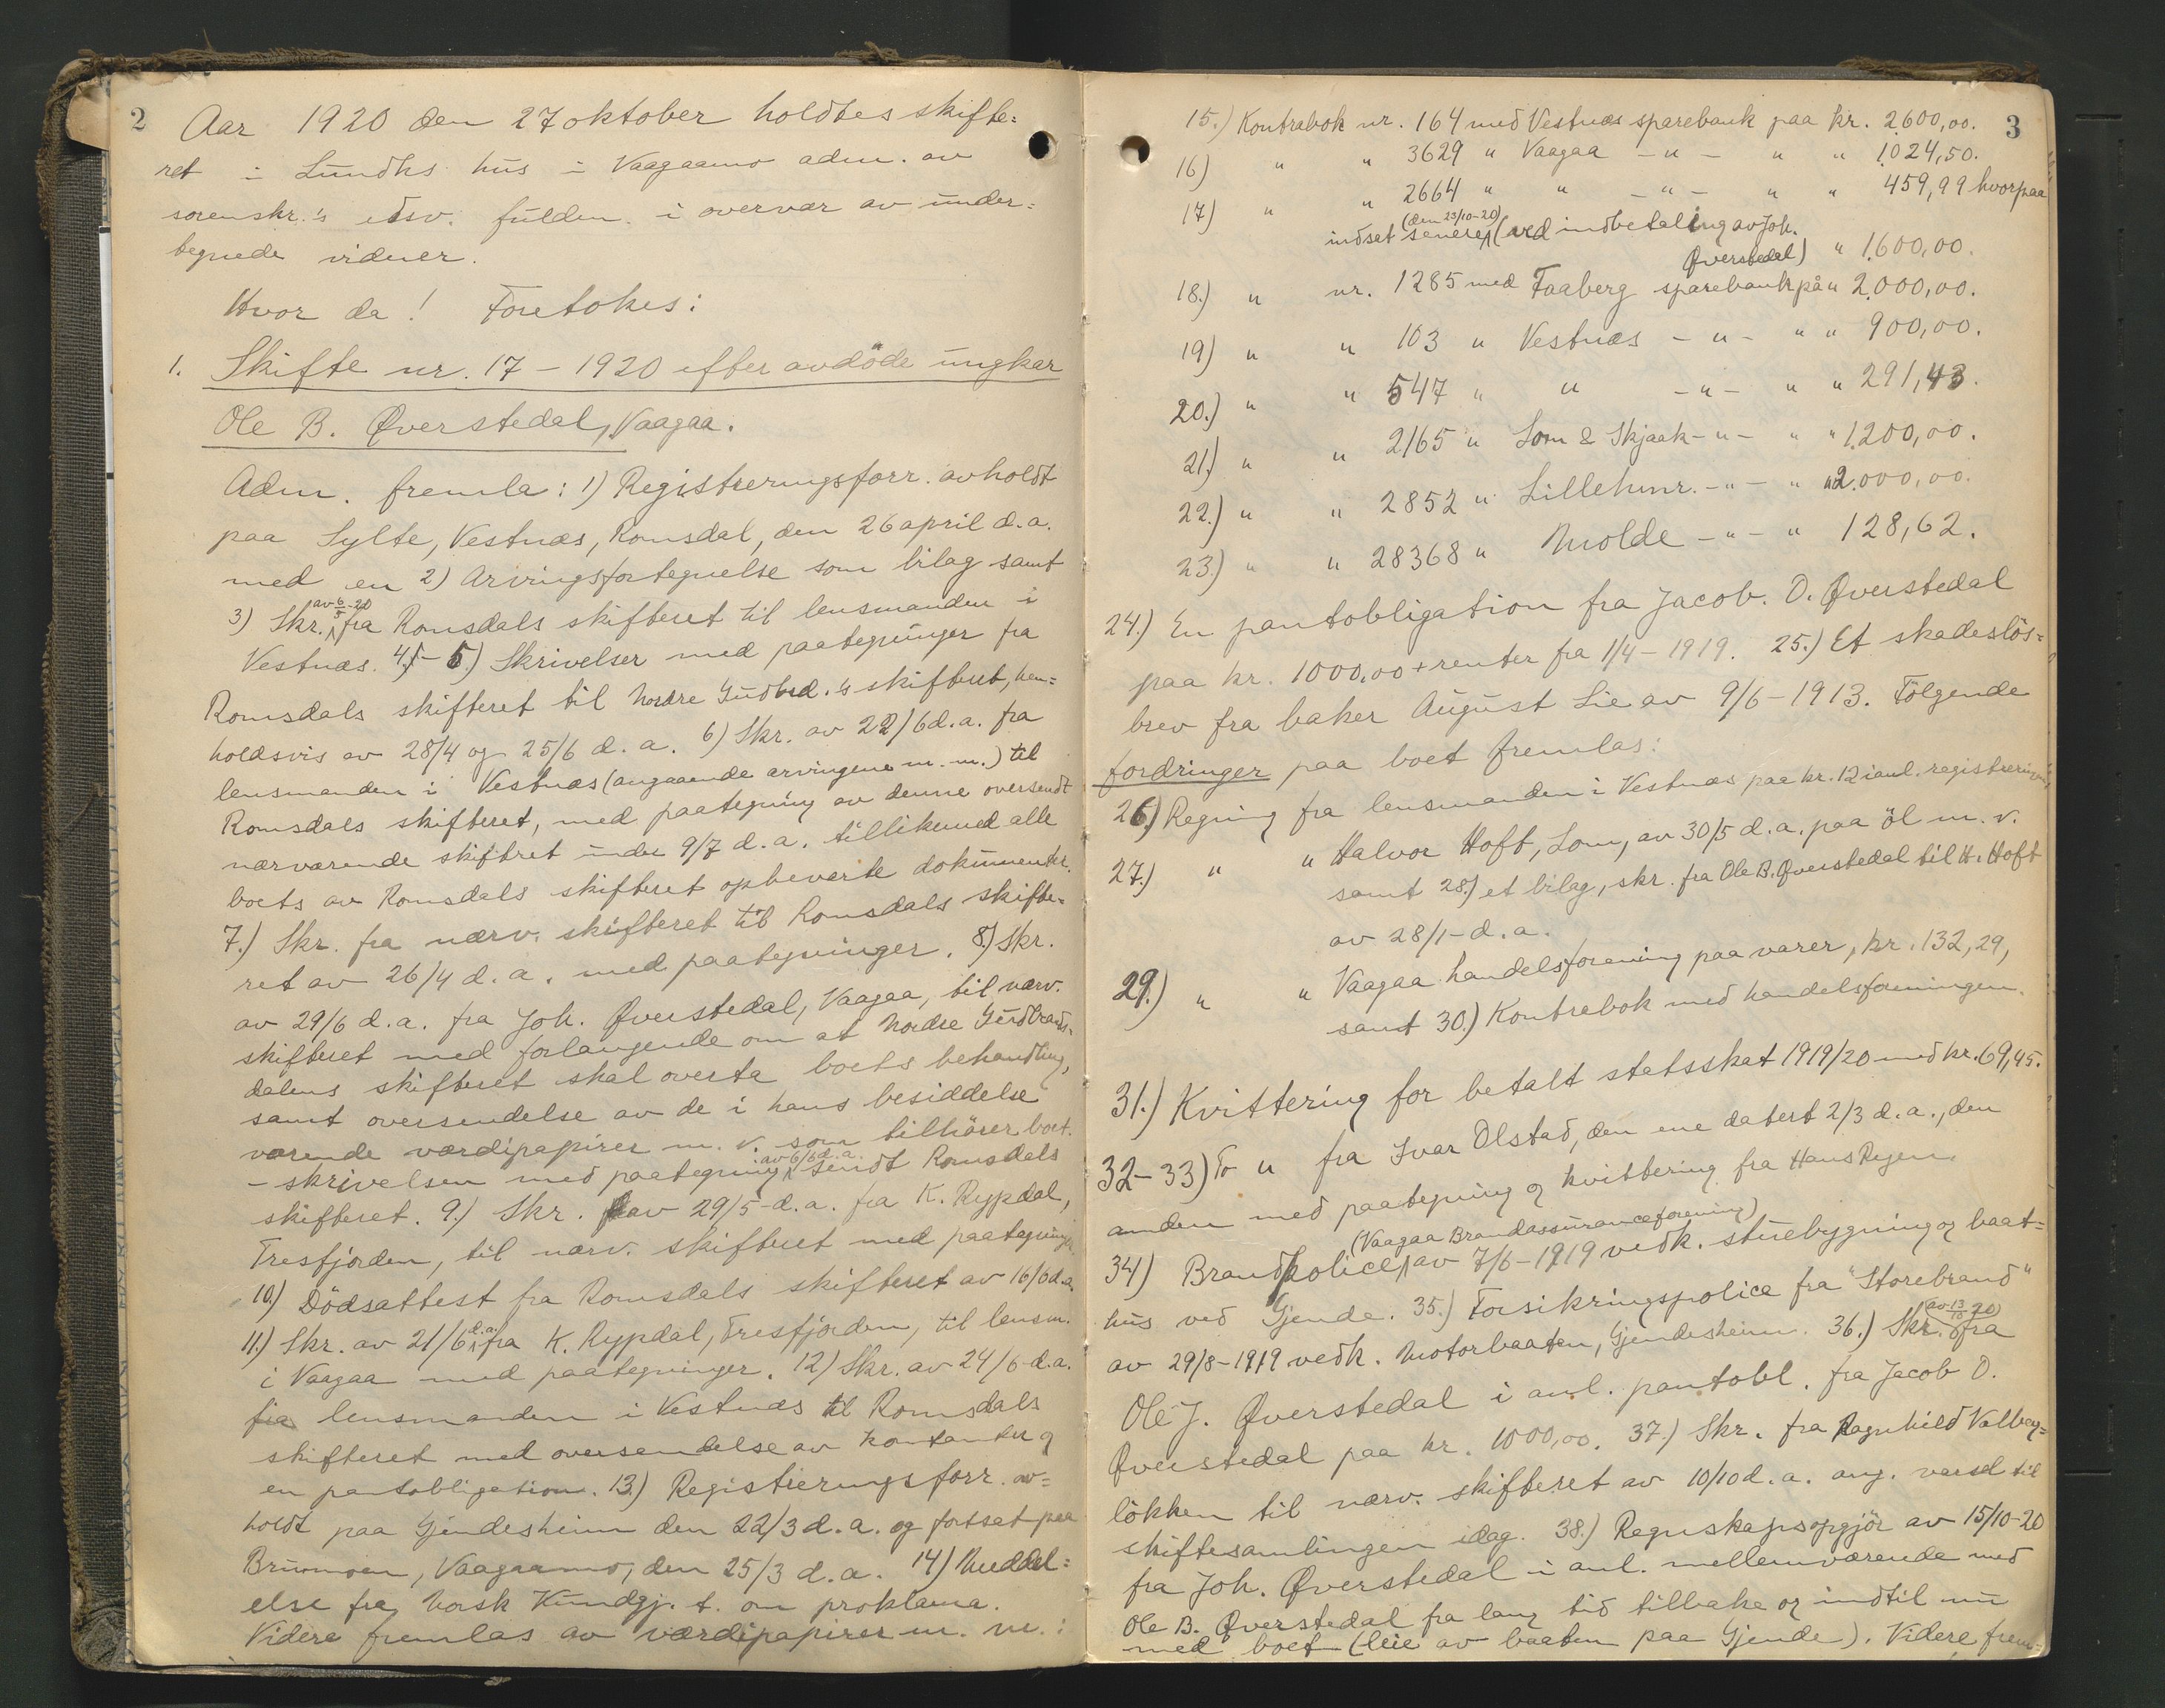 2
Aar 1920 den 27 oktober holdtes skifte=
ret i Lundhs hus i Vaagaamo adm. av
sorenskr.'s edsv. fuldm. i overvær av under=
tegnede vidner.
Hvor da! Foretokes:
1. Skifte nr. 17 – 1920 efter avdöde ungkar
Ole B. Øverstedal, Vaagaa.
Adm. fremla: 1) Registreringsforr. avholdt
paa Sylte, Vestnæs, Romsdal, den 26 april d.a.
med en 2) Arvingsfortegnelse som bilag samt
3) Skr. av 6/5-20 fra Romsdals skifteret til lensmanden i
Vestnæs. 4)-5.) Skrivelser med paategninger fra
Romsdals skifteret til Nordre Gudbrd.'s skifteret, hen=
holdsvis av 28/4 og 25/6 d.a. 6) Skr. av 22/6 d.a. fra
lensmanden i Vestnæs (angaaende arvingene m.m.) til
Romsdals skifteret, med paategning av denne oversendt
nærværende skiftret under 9/7 d.a. tillikemed alle
boets av Romsdals skifteret opbevarte dokumenter.
7.) Skr. fra nærv. skifteret til Romsdals skifte=
ret av 26/4 d.a. med paategninger. 8.) Skr.
av 29/6 d.a. fra Joh. Øverstedal, Vaagaa, til nærv.
skifteret med forlangende om at Nordre Gudbrands=
dalens skifteret skal overta boets behandling,
samt oversendelse av de i hans besiddelse
værende værdipapirer m.v. som tilhörer boet.
– skrivelsen med paategning av 6/6 d.a. sendt Romsdals
skifteret. 9.) Skr. av 29/5-d.a. fra K. Rypdal,
Tresfjorden, til nærv. skifteret med paategninger.
10.) Dödsattest fra Romsdals skifteret av 16/6 d.a.
11.) Skr. av 21/6 d.a. fra K. Rypdal, Tresfjorden, til lensm.
i Vaagaa med paategninger. 12) Skr. av 24/6-d.a.
fra lensmanden i Vestnæs til Romsdals
skifteret med oversendelse av kontanter og
en pantobligation. 13.) Registreringsforr. av=
holdt paa Gjendesheim den 22/3 d.a. og fortsat paa
Brumoen, Vaagaamo, den 25/3 d.a. 14) Meddel=
else fra Norsk Kundgj. t. om proklama.
Videre fremlas av værdipapirer m. m.:
3
15.) Kontrabok nr. 164 med Vestnæs sparebank paa kr. 2600,00.
16) " " 3629 " Vaagaa – " – " " 1024,50.
17) " " 2664 " " – " – " " 459,99 hvorpaa
indsat senere (den 23/10-20) (ved indbetaling av Joh.
Øverstedal) " 1600,00.
18.) " nr. 1285 med Faaberg sparebank på " 2000,00.
19) " " 103 " Vestnæs – " – " " 900,00.
20.) " " 547 " " – " – " " 291,43.
21.) " " 2165 " Lom & Skjaak – " – " " 1200,00.
22.) " " 2852 " Lillehmr. – " – " " 2.000,00.
23.) " " 28368 " Molde – " – " 128,62.
24.) En pantobligation fra Jacob. O. Øverstedal
paa kr. 1000,00 + renter fra 1/4 – 1919. 25.) Et skadeslös=
brev fra baker August Lie av 9/6 – 1913. Fölgende
fordringer paa boet fremlas:
26.) Regning fra lensmanden i Vestnæs paa kr. 12 i anl. registreringen,
27.) " " Halvor Hoft, Lom, av 30/5 d.a. paa öl m. v.
samt 28.) et bilag, skr. fra Ole B. Øverstedal til H. Hoft
av 28/1-d.a.
29.) " " Vaagaa handelsforening paa varer, kr. 132,29,
samt 30.) Kontrabok med handelsforeningen.
31.) Kvittering for betalt statsskat 1919/20 med kr. 69,45.
32–33) To " fra Ivar Olstad, den ene datert 2/3 d.a., den
anden med paategning og kvittering fra Hans Rejem.
34) Brandpolice (Vaagaa Brandassuranceforening) av 7/6-1919 vedk. stuebygning og baat=
hus ved Gjende. 35.) Forsikringspolice fra "Storebrand"
av 29/8-1919 vedk. Motorbaaten, Gjendesheim. 36.) Skr. (av 13/10 20) fra
Ole J. Øverstedal i anl. pantobl. fra Jacob O.
Øverstedal paa kr. 1000,00. 37.) Skr. fra Ragnhild Valbey=
lökken til nærv. skifteret av 10/10 d.a. ang. varsel til
skiftesamlingen idag. 38.) Regnskapsopgjör av 15/10-20
fra Joh. Øverstedal i anl. mellemværende med
Ole B. Øverstedal fra lang tid tilbake og indtil nu
med boet (leie av baaten paa Gjende). Videre frem=